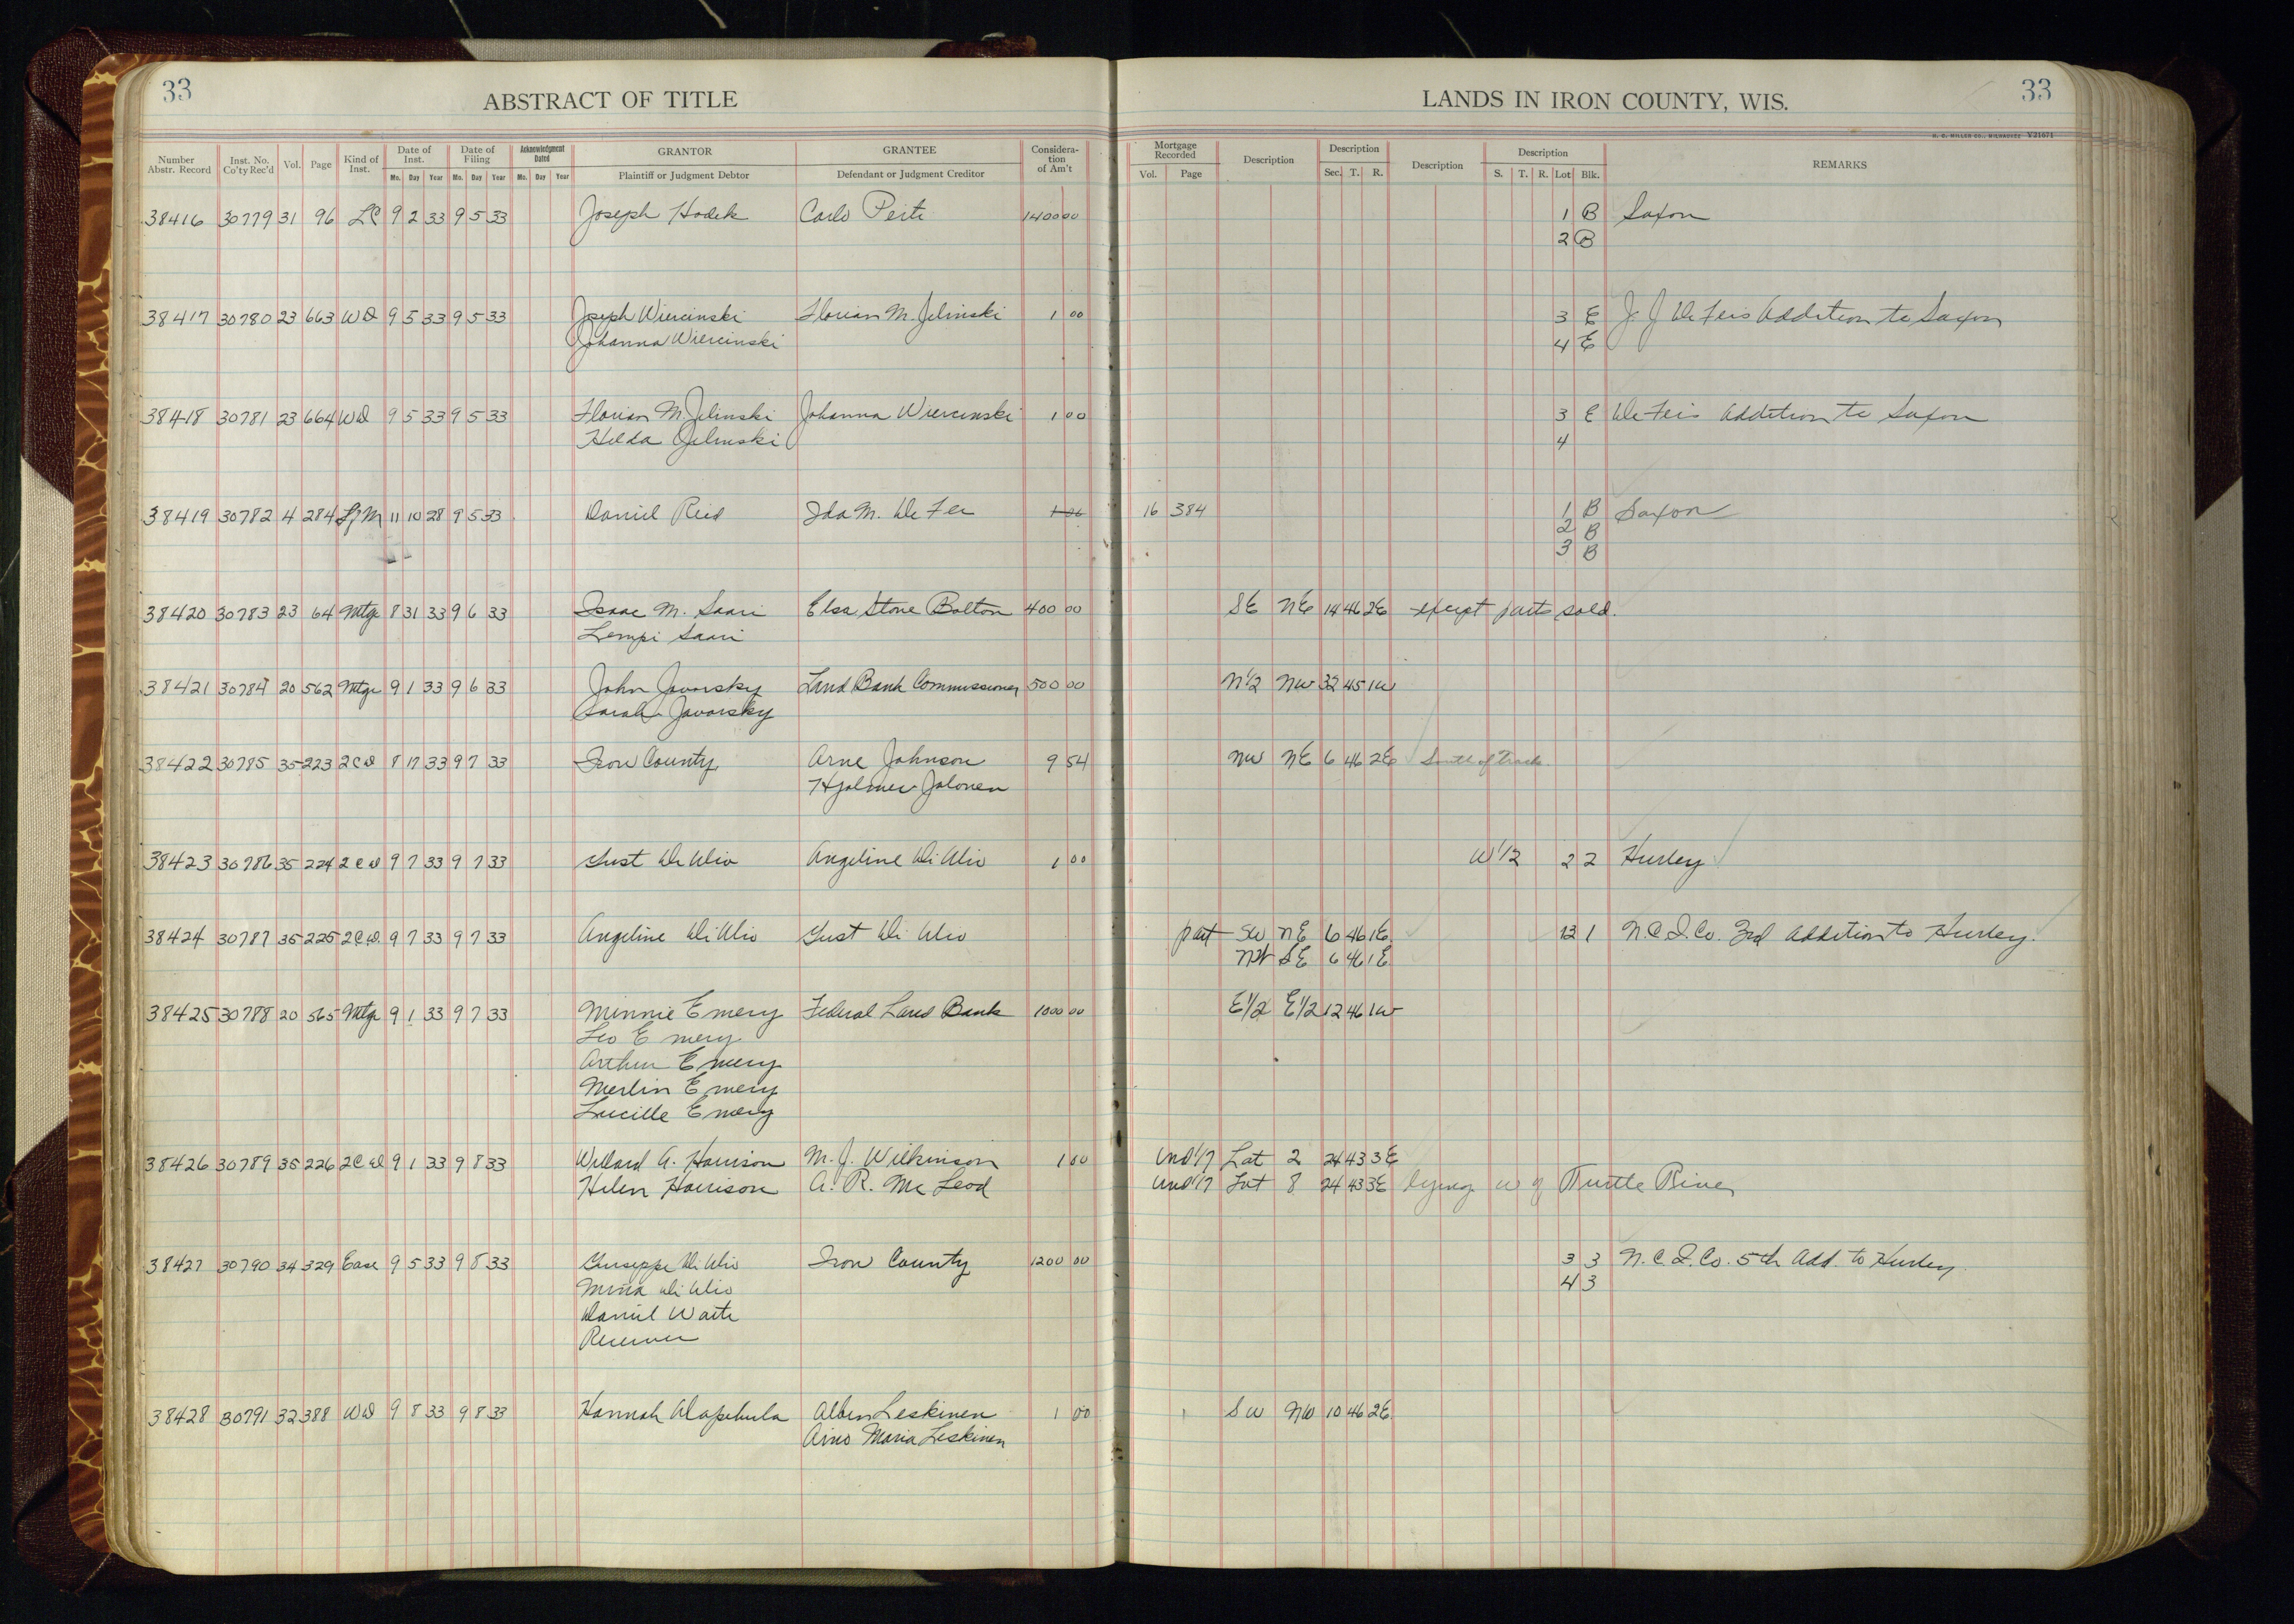 33
ABSTRACT OF TITLE
LANDS IN IRON COUNTY, WIS.
33
H. C. MILLER CO., MILWAUKEE V21671
Number Abstr. Record | Inst. No. Co'ty Rec'd | Vol. | Page | Kind of Inst. | Date of Inst. Mo. Day Year | Date of Filing Mo. Day Year | Acknowledgment Dated Mo. Day Year | GRANTOR Plaintiff or Judgment Debtor | GRANTEE Defendant or Judgment Creditor | Consideration of Am't | Mortgage Recorded Vol. Page | Description | Description Sec. T. R. | Description | Description S. T. R. Lot Blk. | REMARKS
38416 30779 31 96 LC 9 2 33 9 5 33 Joseph Hodek Carlo 1400 00 1 B Saxon
2 B
38417 30780 23 663 WD 9 5 33 9 5 33 Joseph Wiercinski Florian M. Jelinski 1 00 3 E J. J. De Feis Addition to Saxon
Johanna Wiercinski 4 E
38418 30781 23 664 WD 9 5 33 9 5 33 Florian M. Jelinski Johanna Wiercinski 1 00 3 E De Feis Addition to Saxon
Hilda Jelinski 4
38419 30782 4 284 11 10 28 9 5 33 Daniel Reid Ida M. De Fer 1 00 16 384 1 B Saxon
2 B
3 B
38420 30783 23 64 Mtge 8 31 33 9 6 33 Isaac M. Saari Elsa Stone Bolton 400 00 SE NE 14 46 2E except parts sold.
Lempi Saari
38421 30784 20 562 Mtge 9 1 33 9 6 33 John Javorsky Land Bank Commissioner 500 00 N1/2 NW 32 45 1W
Sarah Javorsky
38422 30785 35 223 2CD 8 17 33 9 7 33 Iron County Arne Johnson 9 54 NW NE 6 46 2E South of Track
Hjalmer Jalonen
38423 30786 35 224 2CD 9 7 33 9 7 33 Just De Ulio Angeline Di Ulio 1 00 W1/2 2 2 Hurley
38424 30787 35 225 2CD 9 7 33 9 7 33 Angeline Di Ulio Just Di Ulio part SW NE 6 46 1E 12 1 N.C.I.Co. 3rd Addition to Hurley.
NW SE 6 46 1E
38425 30788 20 565 Mtge 9 1 33 9 7 33 Minnie Emery Federal Land Bank 1000 00 E1/2 E1/2 12 46 1W
Leo Emery
Arthur Emery
Merlin Emery
Lucille Emery
38426 30789 35 226 2CD 9 1 33 9 8 33 Willard A. Harrison M. J. Wilkinson 1 00 Und 1/7 Lot 2 24 43 3E
Helen Harrison A. R. McLeod Und 1/7 Lot 8 24 43 3E lying W of Turtle River
38427 30790 34 329 Ease 9 5 33 9 8 33 Giuseppe Di Ulio Iron County 1200 00 3 3 N.C.I.Co. 5th Add. to Hurley.
Di Ulio 4 3
Daniel Waite
Receiver
38428 30791 32 388 WD 9 8 33 9 8 33 Hannah Albin Leskinen 1 00 SW NW 10 46 2E
Aino Maria Leskinen